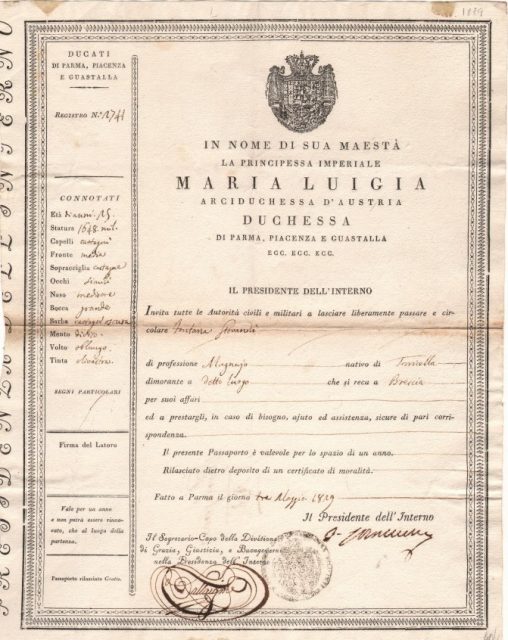 1829
DUCATI
DI PARMA, PIACENZA
E GUASTALLA
REGISTRO N.° 2741
CONNOTATI
Età d'anni 25
Statura 1648 mil.
Capelli castagni
Fronte media
Sopracciglia castagne
Occhi
Naso medione
Bocca grande
Barba castagna oscura
Mento
Volto oblungo
Tinta olivastra
SEGNI PARTICOLARI
Firma del Latore
Vale per un anno
e non potrà essere rinno-
vato, che al luogo della
partenza.
Passaporto rilasciato Gratis.
PRESIDENZA DELL'INTERNO
IN NOME DI SUA MAESTÀ
LA PRINCIPESSA IMPERIALE
MARIA LUIGIA
ARCIDUCHESSA D'AUSTRIA
DUCHESSA
DI PARMA, PIACENZA E GUASTALLA
ECC. ECC. ECC.
IL PRESIDENTE DELL'INTERNO
Invita tutte le Autorità civili e militari a lasciare liberamente passare e cir-
colare Fontana
di professione nativo di
dimorante a detto luogo che si reca a Brescia
per suoi affari
ed a prestargli, in caso di bisogno, ajuto ed assistenza, sicure di pari corri-
spondenza.
Il presente Passaporto è valevole per lo spazio di un anno.
Rilasciato dietro deposito di un certificato di moralità.
Fatto a Parma il giorno tre Maggio 1829
Il Presidente dell'Interno
Il Segretario-Capo della Divisione
di Grazia, Giustizia, e Buongoverno
nella Presidenza dell'Interno